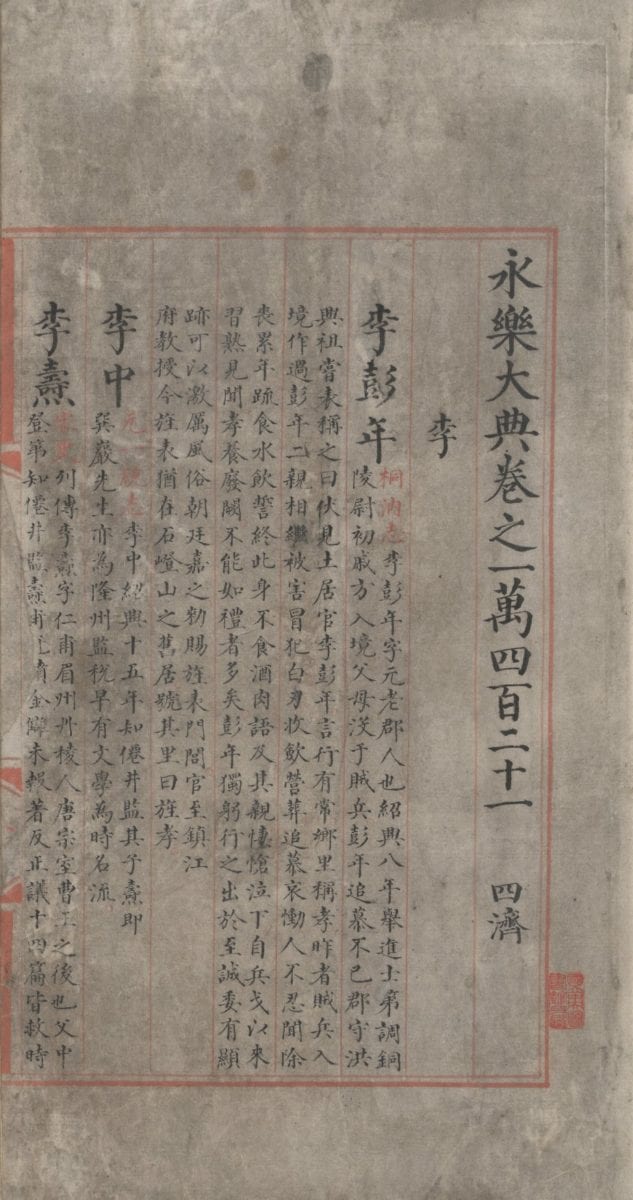 永樂大典卷之一萬四百二十一 四濟
李
李彭年
桐汭志李彭年字元老郡人也紹興八年舉進士第調銅
陵尉初戚方入境父母没于賊兵彭年追慕不已郡守洪
興祖嘗表稱之曰伏見土居官李彭年言行有常鄉里稱孝昨者賊兵入
境作過彭年二親相繼被害冒犯白刃收斂營葬追慕哀慟人不忍聞除
喪累年蹠食水飲誓終此身不食酒肉語及其親悽愴泣下自兵戈以來
習熟見聞孝養廢闕不能如禮者多矣彭年獨躬行之出於至誠委有顯
跡可以激厲風俗朝廷嘉之勑賜旌表門閭官至鎮江
府教授今旌表猶在石㟨山之舊居號其里曰旌孝
李中
元一統志李中紹興十五年知僊井監其子燾即
巽巖先生亦為隆州監稅早有文學為時名流
李燾
宋史列傳李燾字仁甫眉州丹稜人唐宗室曹王之後也父中
登第知僊井監燾甫冠憤金讎未報著反正議十四篇皆救時